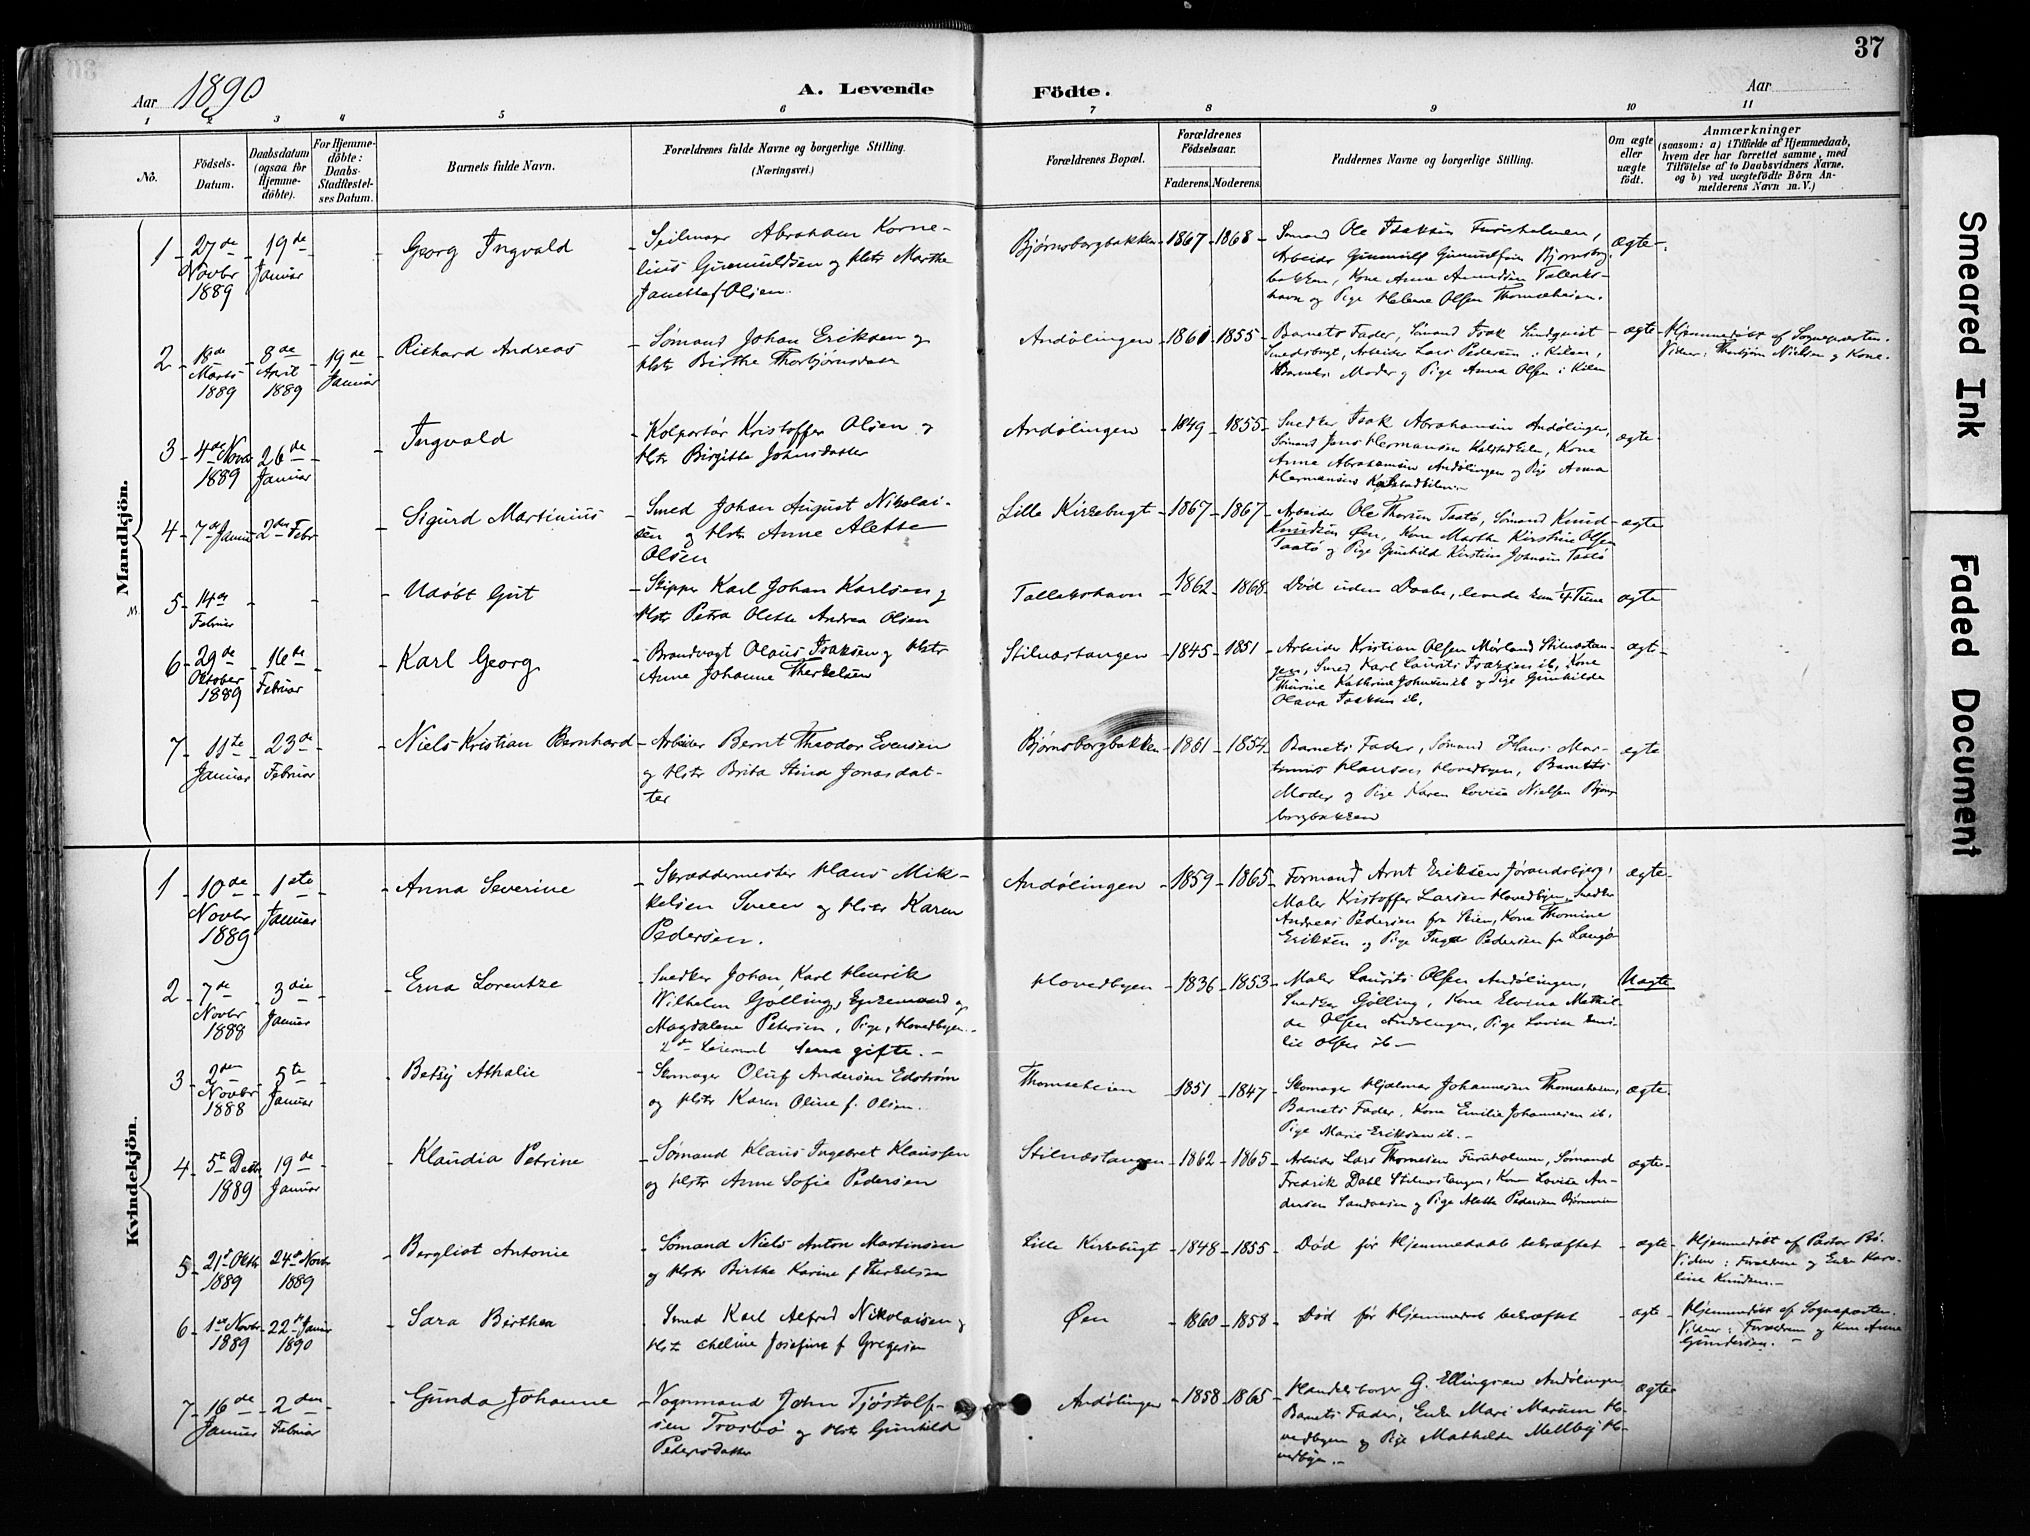 37
Aar 1890
A. Levende Fødte.
Aar
1 2 3 4 5 6 7 8 9 10 11
No.
Födsels-Datum.
Daabsdatum (ogsaa for Hjemme-döbte).
For Hjemme-döbte: Daabs-Stadfæstel-ses Datum.
Barnets fulde Navn.
Forældrenes fulde Navne og borgerlige Stilling. (Næringsvei.)
Forældrenes Bopæl.
Forældrenes Födselsaar.
Faderens. Moderens.
Faddernes Navne og borgerlige Stilling.
Om ægte eller uægte født.
Anmærkninger
(saasom: a) i Tilfælde af Hjemmedaab, hvem der har forrettet samme, med Tilföielse af to Daabsvidners Navne, og b) ved uægtefödte Börn An-melderens Navn m. V.)
Mandkjön.
1 27de Novbr 1889 19de Januar Georg Ingvald
Seilmager Abraham Korne-
lius Gunnuldsen og Hstr Marthe
Janette f Olsen.
Bjørnsborgbakken 1867 1868
Sømand Ole Isaksen Furuholmen,
Arbeider Gunnulf Bjørnsborg
bakken, Kone Anne Amundsen Tallaks-
havn og Pige Helene Olsen Thomesheien.
ægte
2 18de Marts 1889 8de April 1889 19de Januar Richard Andreas
Sømand Johan Eriksen og
Hstr Birthe Thorbjørnsdatter
Andølingen 1860 1855
Barnets Fader, Sømand Isak Lindquist
Smedsbugt, Arbeider Lars Pedersen i Kilen,
Barnets Moder og Pige Anna Olsen i Kilen
ægte
Hjemmedøbt af Sognepræsten.
Vidner: Thorbjørn Nielsen og Kone.
3 4de Novbr 1889 26de Januar Ingvald
Kolportør Kristoffer Olsen og
Hstr Birgitte Johnsdatter
Andølingen 1849 1855
Snedker Isak Abrahamsen Andølingen,
Sømand Jens Hermansen Kalstadkilen, Kone
Anne Abrahamsen Andølingen og Pige Anna
Hermansen Kalstadkilen.
ægte
4 7de Januar 2den Febr Sigurd Martinius
Smed Johan August Nikolai-
sen og Hstr Anne Alette
Olsen
Lille Kirkebugt 1867 1867
Arbeider Ole Thorsen Taatø, Sømand Knud
Knudsen Øen, Kone Marthe Kirstine Olsen
Taatø og Pige Gunhild Kirstine Johnsen Taatø
ægte
5 14de Februar Udøbt Gut
Skipper Karl Johan Karlsen og
Hstr Petra Olette Andrea Olsen
Tallakshavn 1862 1868
Død uden Daab, levede kun 1/4 Time
ægte
6 29de Oktober 1889 16de Februar Karl Georg
Brandvagt Olaus Isaksen og Hstr
Anne Johanne Therkelsen
Stilnæstangen 1845 1851
Arbeider Kristian Olsen Mørland Stilnæstan-
gen, Smed Karl Laurits Isaksen ib, Kone
Thurine Kathrine Johnsen ib og Pige Gunhilde
Olava Isaksen ib.
ægte
7 11te Januar 23de Februar Niels Kristian Bernhard
Arbeider Bernt Theodor Evensen
og Hstr Brita Stina Jonasdat-
ter
Bjørnsborgbakken 1861 1854
Barnets Fader, Sømand Hans Mar-
tinius Hansen Hovedbyen, Barnets
Moder og Pige Karen Lovise Nielsen Bjørns
borgbakken
ægte
Kvindekjön.
1 10de Novbr 1889 1ste Januar Anna Severine
Skræddermester Klaus Mik-
kelsen og Hstr Karen
Pedersen.
Andølingen 1859 1865
Formand Arnt Eriksen Jørandsbjerg,
Maler Kristoffer Larsen Hovedbyen, Snedker
Andreas Pedersen fra Skien, Kone Thomine
Eriksen og Pige Inga Pedersen fra Langø
ægte
2 7de Novbr 1888 3die Januar Erna Lorentze
Snedker Johan Karl Henrik
Wilhelm Gølling, Enkemand og
Magdalene Petersen, Pige, Hovedbyen.
2de Leiermaal. Senere gifte.
Hovedbyen 1836 1853
Maler Laurits Olsen Andølingen,
Snedker Gølling, Kone Elvina Mathil-
de Olsen Andølingen, Pige Lovise Emi-
lie Olsen ib
Uægte
3 2den Novbr 1888 5te Januar Betsy Athalie
Skomager Oluf Andersen Edstrøm
og Hstr Karen Oline f. Olsen.
Thomesheien 1851 1847
Skomager Hjalmar Johannesen Thomesheien,
Barnets Fader, Kone Emilie Johannesen ib,
Pige Marie Eriksen ib.
ægte
4 5te Decbr 1889 19de Januar Klaudia Petrine
Sømand Klaus Ingebret Klaussen
og Hstr Anne Sofie Pedersen
Stilnæstangen 1862 1865
Arbeider Lars Thomesen Furuholmen, Sømand
Fredrik Dahl Stilnæstangen, Kone Lovise An-
dersen Sandaasen og Pige Alette Pedersen
ægte
5 21de Oktbr 1889 24de Novbr 1889 Bergliot Antonie
Sømand Niels Anton Martinsen
og Hstr Birthe Karine f Therkelsen
Lille Kirkebugt 1848 1855
Død før Hjemmedaab bekræftet
ægte
Hjemmedøbt af Pastor Bö.
Vidner: Forældrene og Enke Karo-
line Knudsen.
6 1ste Novbr 1889 22de Januar 1890 Sara Birthea
Smed Karl Alfred Nikolaisen og
Hstr Josefine f Gregersen
Øen 1860 1858
Død før Hjemmedaab bekræftet
ægte
Hjemmedøbt af Sognepræsten.
Vidner: Forældrene og Kone Anne
Gundersen.
7 16de Januar 2den Februar Gunda Johanne
Vognmand John Tjøstolf-
sen Tvorbø og Hstr Gunhild
Pedersdatter
Andølingen 1858 1865
Handelsborger G. Ellingsen Andølingen
Barnets Fader, Enke Mari Marum Ho-
vedbyen og Pige Mathilde Mellbÿ Ho-
vedbyen.
ægte
Smeared Ink
Faded Document